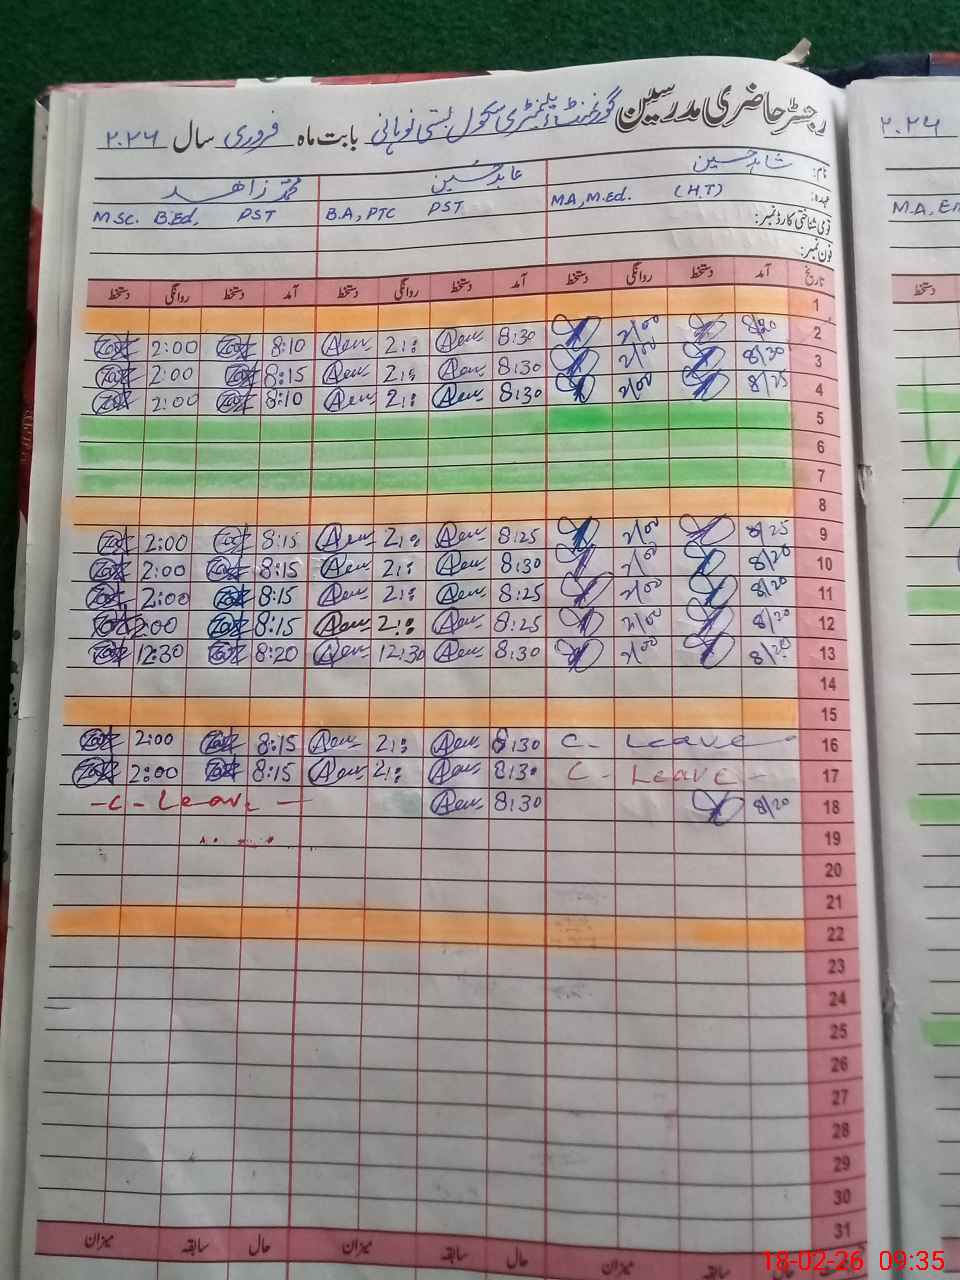 رجسٹر حاضری مدرسین گورنمنٹ ایلیمنٹری سکول بستی نوہانی بابت ماہ فروری سال ۲۰۲۶
نام: شاہد حسین عابد حسین محمد زاھد
عہدہ: MA, M.Ed. (H.T) B.A, PTC PST M.Sc. B.Ed, PST
قومی شناختی کارڈ نمبر:
فون نمبر:
تاریخ آمد دستخط روانگی دستخط آمد دستخط روانگی دستخط آمد دستخط روانگی دستخط
1
2 8/20 2/00 8:30 2: 8:10 2:00
3 8/30 2/00 8:30 2: 8:15 2:00
4 8/25 2/00 8:30 2: 8:10 2:00
5
6
7
8
9 8/25 2/00 8:25 2: 8:15 2:00
10 8/20 2/00 8:30 2: 8:15 2:00
11 8/20 2/00 8:25 2: 8:15 2:00
12 8/20 2/00 8:25 2: 8:15 2:00
13 8/20 2/00 8:30 12:30 8:20 12:30
14
15
16 C - Leave - 8:30 2: 8:15 2:00
17 C - Leave - 8:30 2: 8:15 2:00
18 8/20 8:30 - C - Leave -
19
20
21
22
23
24
25
26
27
28
29
30
31
حال سابقہ میزان حال سابقہ میزان حال سابقہ میزان
18-02-26 09:35
۲۰۲۶
M.A, 
دستخط